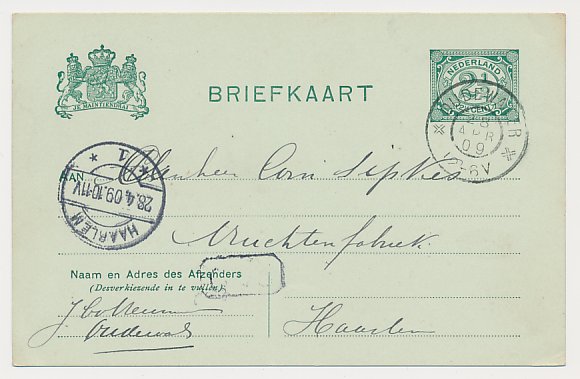 JE MAINTIENDRAI
BRIEFKAART
NEDERLAND
2½
CENT
OUDEWATER
APR
09
6V
HAARLEM
28.4.09.10-11V
1
AAN
den heer Corn Sipkes
Vruchtenfabriek.
Haarlem
Naam en Adres des Afzenders
(Desverkiezende in te vullen).
J
Oudewater